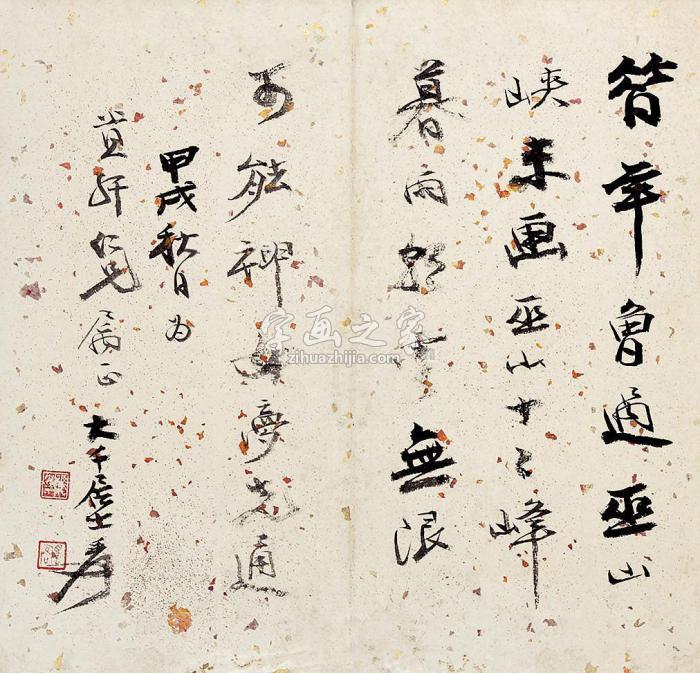 昔年曾過巫山
峽来画巫山十二峰
暮雨朝雲無限
可能神女夢先通
甲戌秋日为
軒仁兄属正
大千居士爰
字画之家
zihuazhijia.com